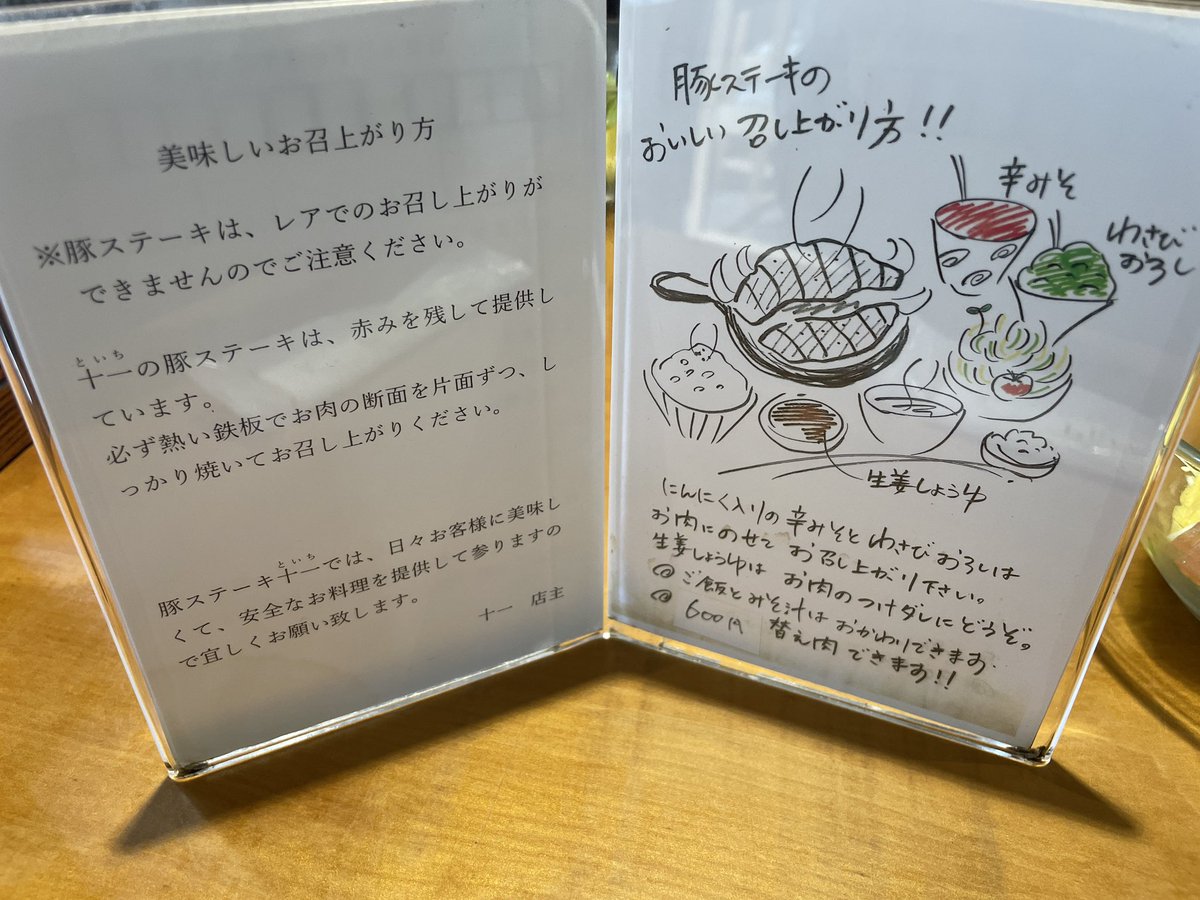 美味しいお召上がり方
※豚ステーキは、レアでのお召し上がりが
できませんのでご注意ください。
といち
十一の豚ステーキは、赤みを残して提供し
ています。
必ず熱い鉄板でお肉の断面を片面ずつ、し
っかり焼いてお召し上がりください。
といち
豚ステーキ十一では、日々お客様に美味し
くて、安全なお料理を提供して参りますの
で宜しくお願い致します。
十一 店主
豚ステーキの
おいしい 召し上がり方!!
辛みそ
わさび
おろし
生姜しょうゆ
にんにく入りの辛みそとわさびおろしは
お肉にのせて お召し上がり下さい。
生姜しょうゆは お肉のつけダレにどうぞ。
◎ ご飯とみそ汁は おかわりできます
◎ 600円 替え肉できます!!